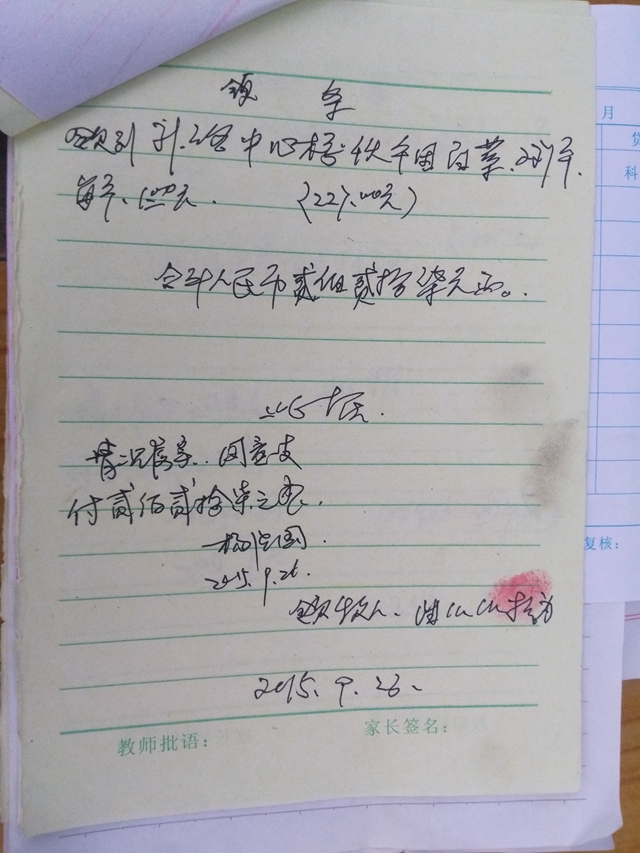 领条
领到 中心校伙 白菜 227斤.
每斤.1.00元. (227.00元)
合计人民币贰佰贰拾柒元正。
此据.
情况属实.. 同意支
付贰佰贰拾柒元整.
2015.9.26.
领款人.
2015.9.26.
教师批语：
家长签名：
月
科
复核：